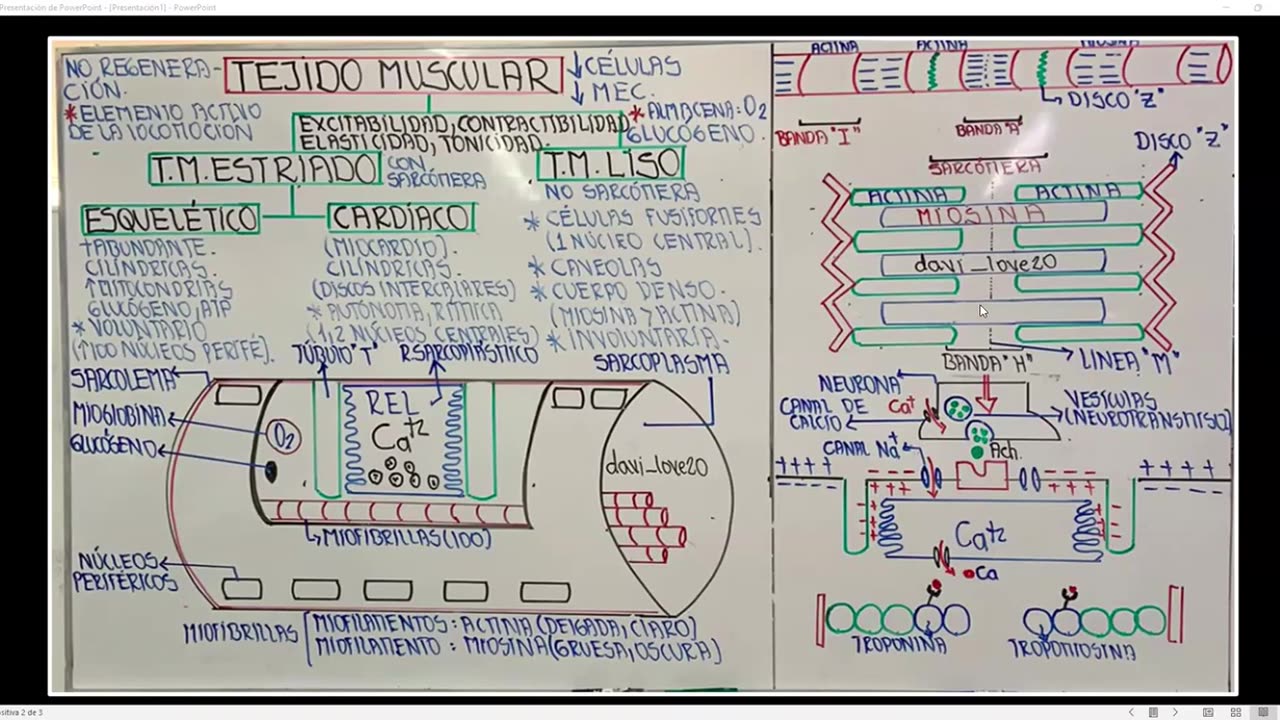 Presentación de PowerPoint - [Presentación1] - PowerPoint
NO REGENERA-
CIÓN.
*ELEMENTO ACTIVO
DE LA LOCOMOCIÓN
TEJIDO MUSCULAR
↓CÉLULAS
↓MEC.
*ALMACENA: O2
GLUCÓGENO.
EXCITABILIDAD, CONTRACTIBILIDAD
ELASTICIDAD, TONICIDAD.
T.M. ESTRIADO
CON
SARCÓMERA
T.M. LISO
NO SARCÓMERA
* CÉLULAS FUSIFORMES
(1 NÚCLEO CENTRAL).
* CAVEOLAS
* CUERPO DENSO.
(MIOSINA > ACTINA)
* INVOLUNTARIA.
ESQUELÉTICO
+ABUNDANTE.
CILÍNDRICAS.
↑MITOCONDRIAS
GLUCÓGENO, ATP
* VOLUNTARIO
(↑100 NÚCLEOS PERIFÉ).
CARDÍACO
(MIOCARDIO).
CILÍNDRICAS.
(DISCOS INTERCALARES)
* AUTÓNOMA, RÍTMICA
(1,2 NÚCLEOS CENTRALES)
TÚBULO "T"
R SARCOPLÁSTICO
SARCOPLASMA
SARCOLEMA
MIOGLOBINA
GLUCÓGENO
O2
REL
Ca+2
davi_love20
MIOFIBRILLAS (100)
NÚCLEOS
PERIFÉRICOS
MIOFIBRILLAS
MIOFILAMENTOS: ACTINA (DELGADA, CLARO)
MIOFILAMENTO: MIOSINA (GRUESA, OSCURA)
ACTINA
ACTINA
MIOSINA
DISCO "Z"
BANDA "I"
BANDA "A"
DISCO "Z"
SARCÓMERA
ACTINA
ACTINA
MIOSINA
davi_love20
BANDA "H"
LINEA "M"
NEURONA
CANAL DE
CALCIO
Ca+
VESÍCULAS
(NEUROTRANSMISO)
CANAL Na+
Ach.
++++
----
++++
----
---
+++
---
+++
Ca+2
Ca
TROPONINA
TROPOMIOSINA
sitiva 2 de 3